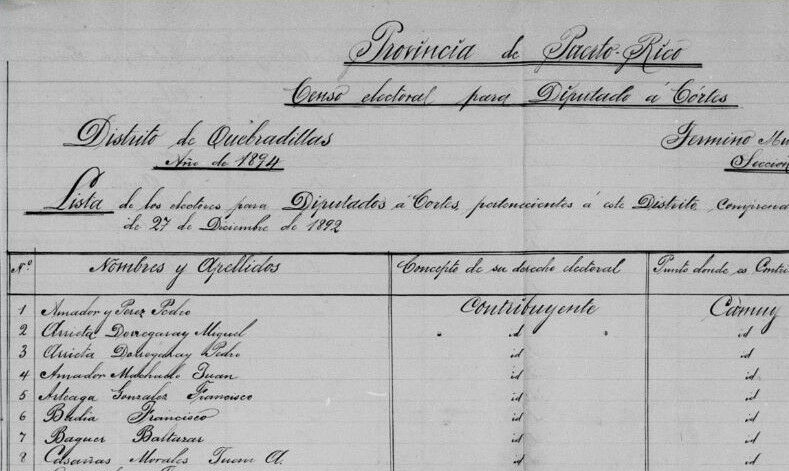 Provincia de Puerto-Rico
Censo electoral para Diputado á Córtes
Distrito de Quebradillas
Termino Mu
Año de 1894
Seccion
Lista de los electores para Diputados á Cortes, pertenecientes á este Distrito, comprend
de 27 de Diciembre de 1892
Nº Nombres y Apellidos Concepto de su derecho electoral Punto donde es Contri
1 Amador y Perez Pedro Contribuyente Camuy
2 Arrieta Dorregaray Miguel id id
3 Arrieta Dorregaray Pedro id id
4 Amador Machado Juan id id
5 Arteaga Gonzalez Francisco id id
6 Badia Francisco id id
7 Baquer Baltazar id id
8 Casañas Morales Juan A. id id